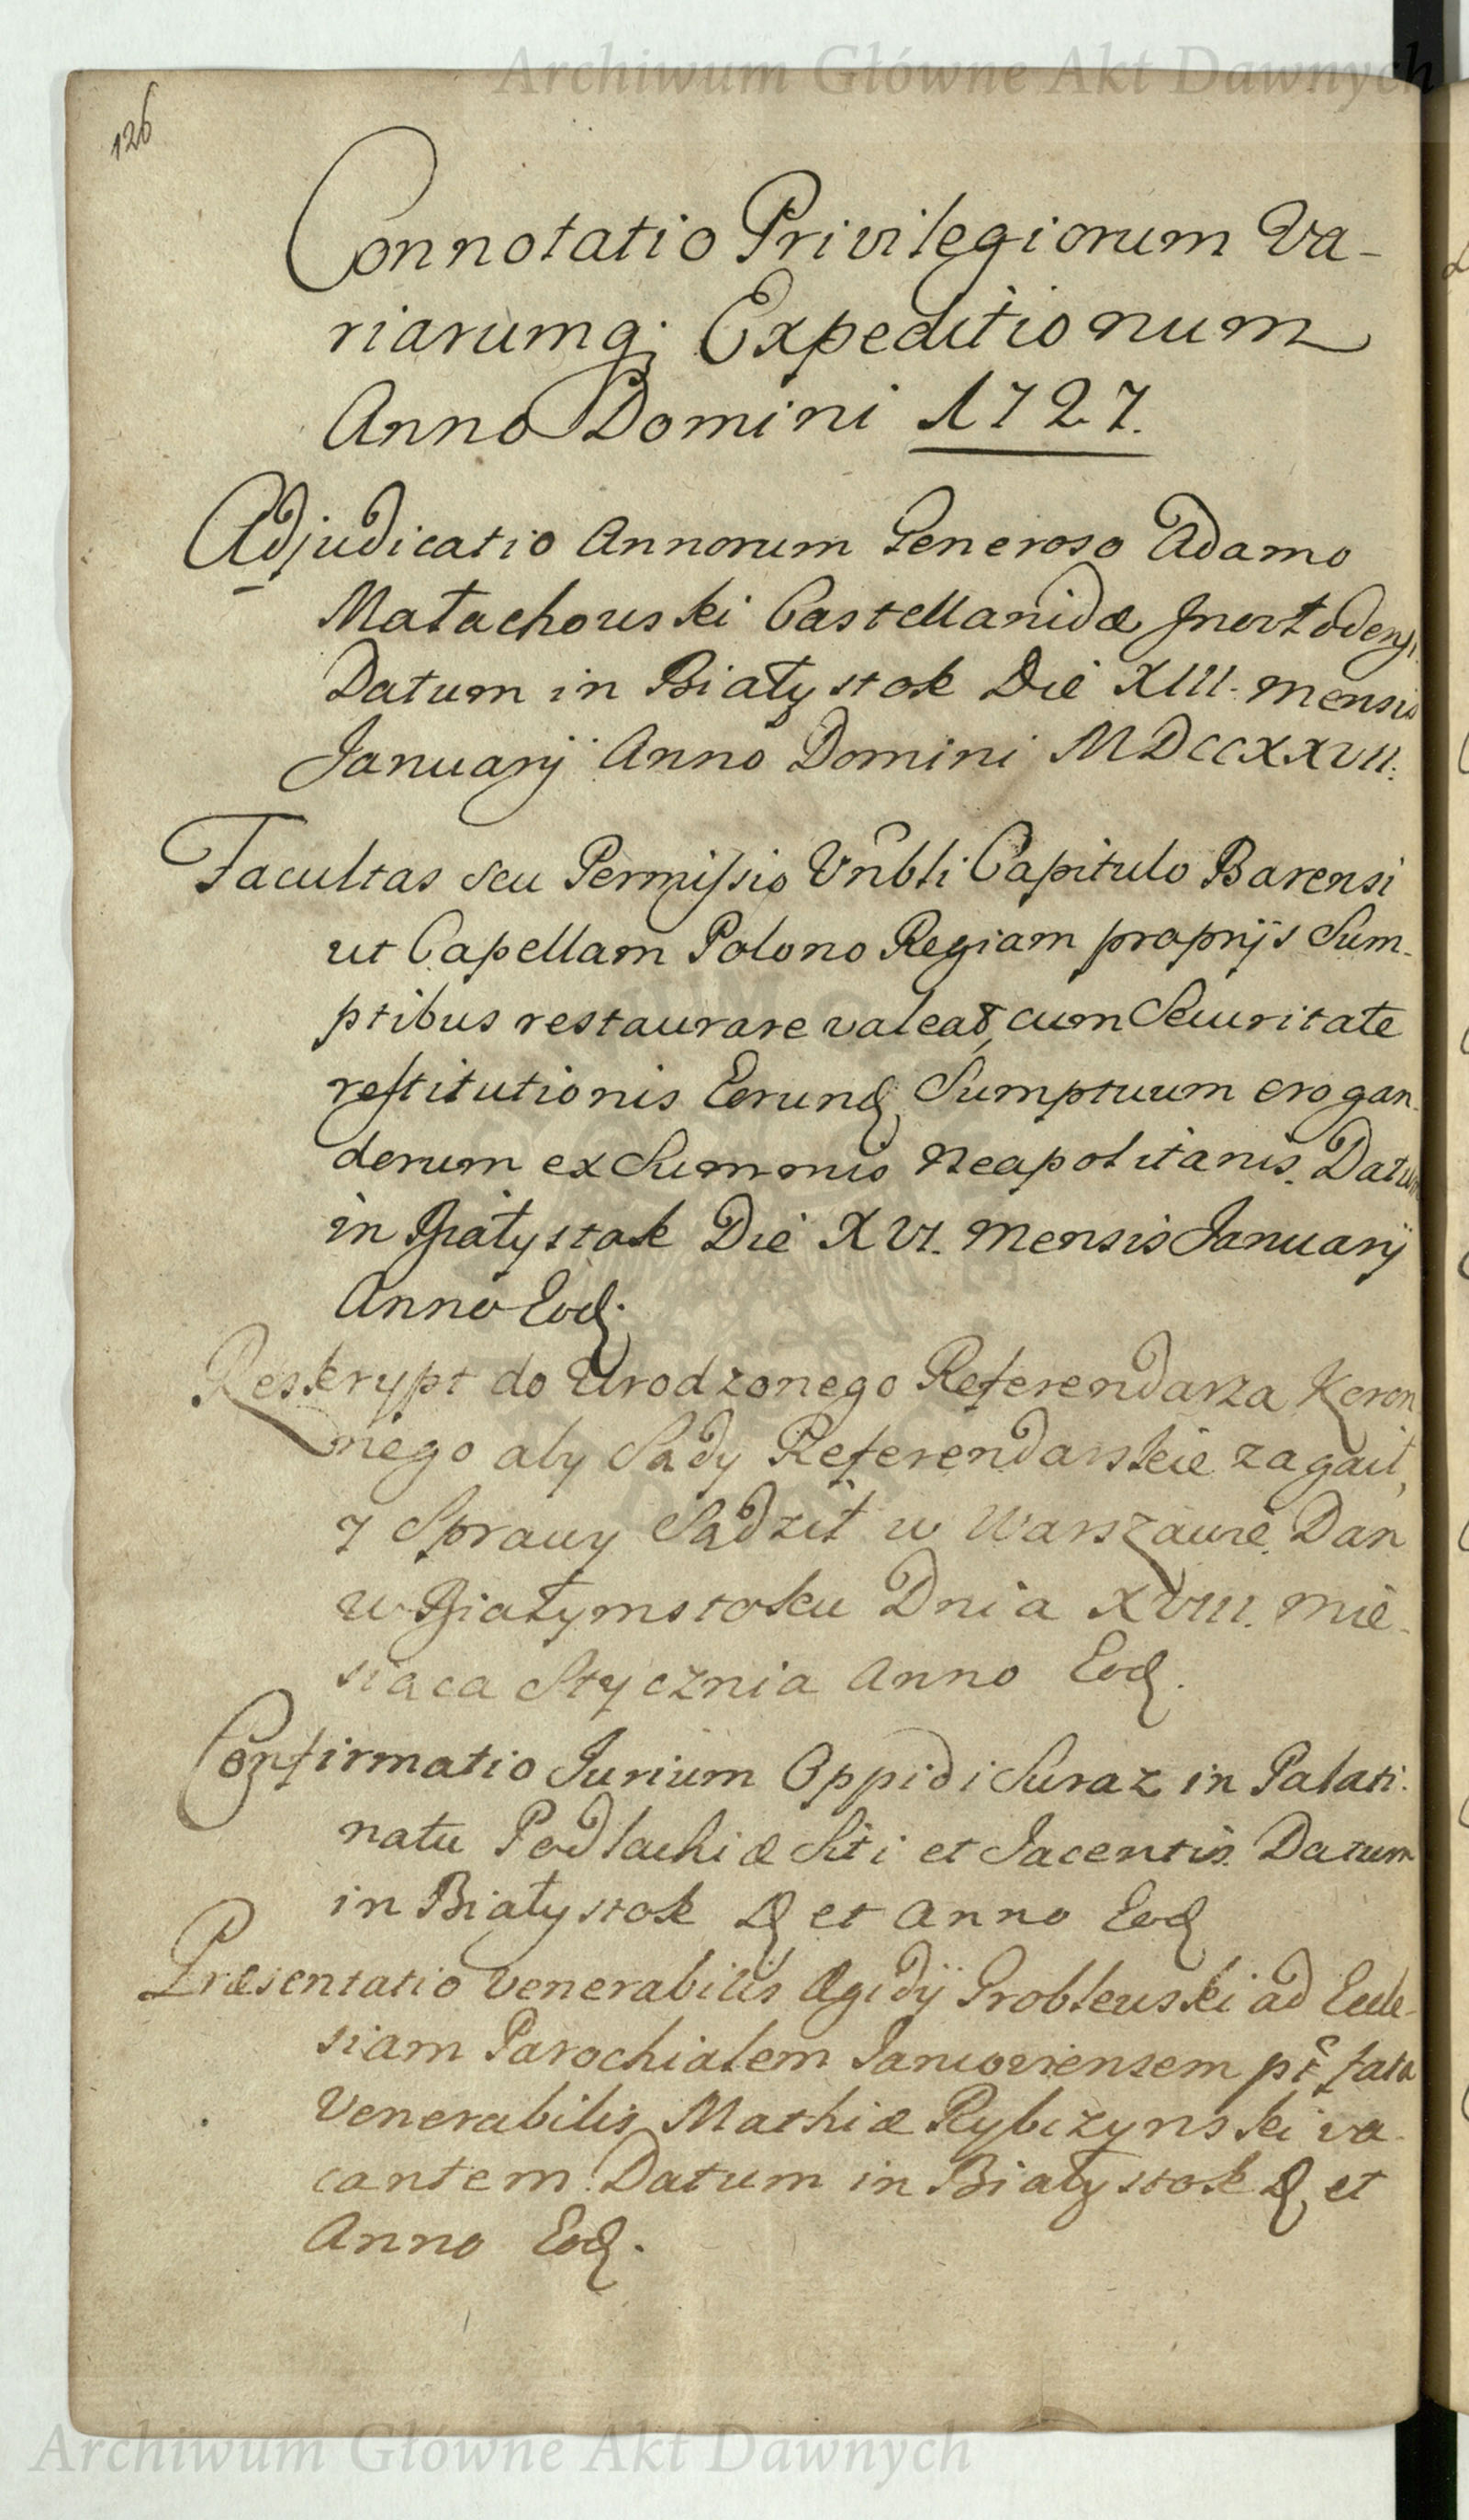 Archiwum Główne Akt Dawnych
126
Connotatio Privilegiorum Va-
riarumq; Expeditionum
Anno Domini 1727.
Adjudicatio Annorum Generoso Adamo
Małachowski Castellanidæ Inowłodensi.
Datum in Białystok Die XIII. Mensis
Januarij Anno Domini MDCCXXVII.
Facultas seu Permissio Vnbli Capitulo Barensi
ut Capellam Polono Regiam proprijs Sum-
ptibus restaurare valeat, cum Securitate
restitutionis Eorund Sumptuum erogan-
dorum ex Summis Neapolitanis. Datum
in Białystok Die XVI. Mensis Januarij
Anno Eod.
Reskrypt do Urodzonego Referendarza Koron
nego aby Sądy Referendarskie zagaił,
y Sprawy Sądził w Warszawie. Dan
w Białymstoku Dnia XVIII. Mie-
siąca Stycznia Anno Eod.
Confirmatio Jurium Oppidi Suraz in Palati-
natu Podlachiæ Siti et Jacentis. Datum
in Białystok D et Anno Eod
Præsentatio Venerabilis Ægidij Groblewski ad Eccle-
siam Parochialem Janoviensem pt fata
Venerabilis Mathiæ Rybczynski va-
cantem. Datum in Białystok D et
Anno Eod.
Archiwum Główne Akt Dawnych